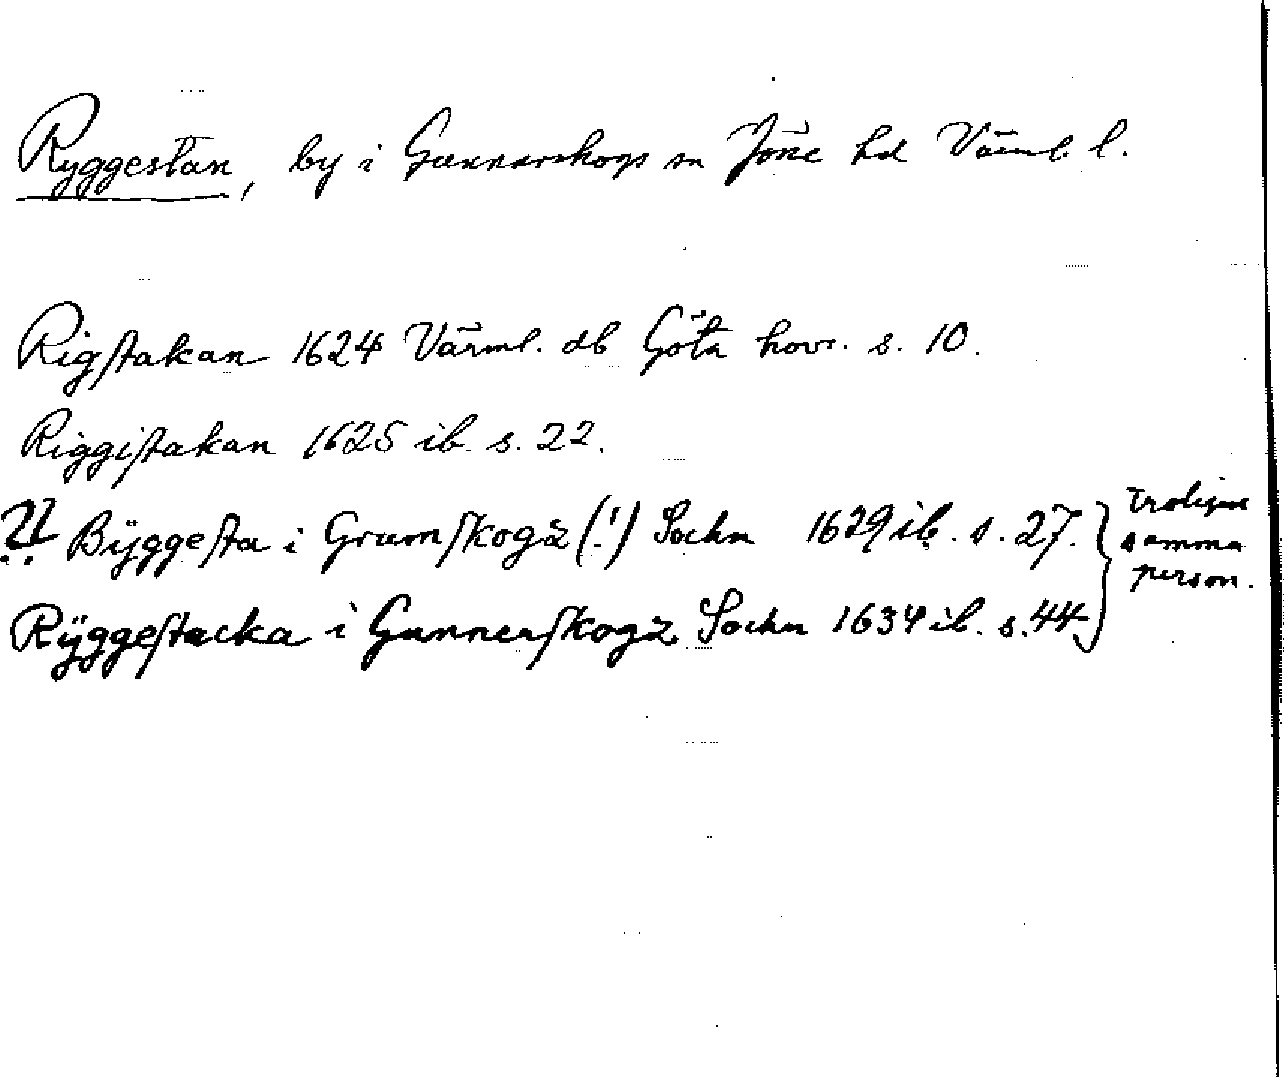 Ryggestan, by i Gunnarskogs sn Jösse hd Värml. l.
Rigstakan 1624 Värml. db Göta hovr. s. 10.
Riggistakan 1625 ib. s. 22.
?! Bÿggesta i Grumskogz (!) Sochn 1629 ib. s. 27. } troligen samma person.
Rÿggestacka i Gunnerskogz Sochn 1634 ib. s. 44